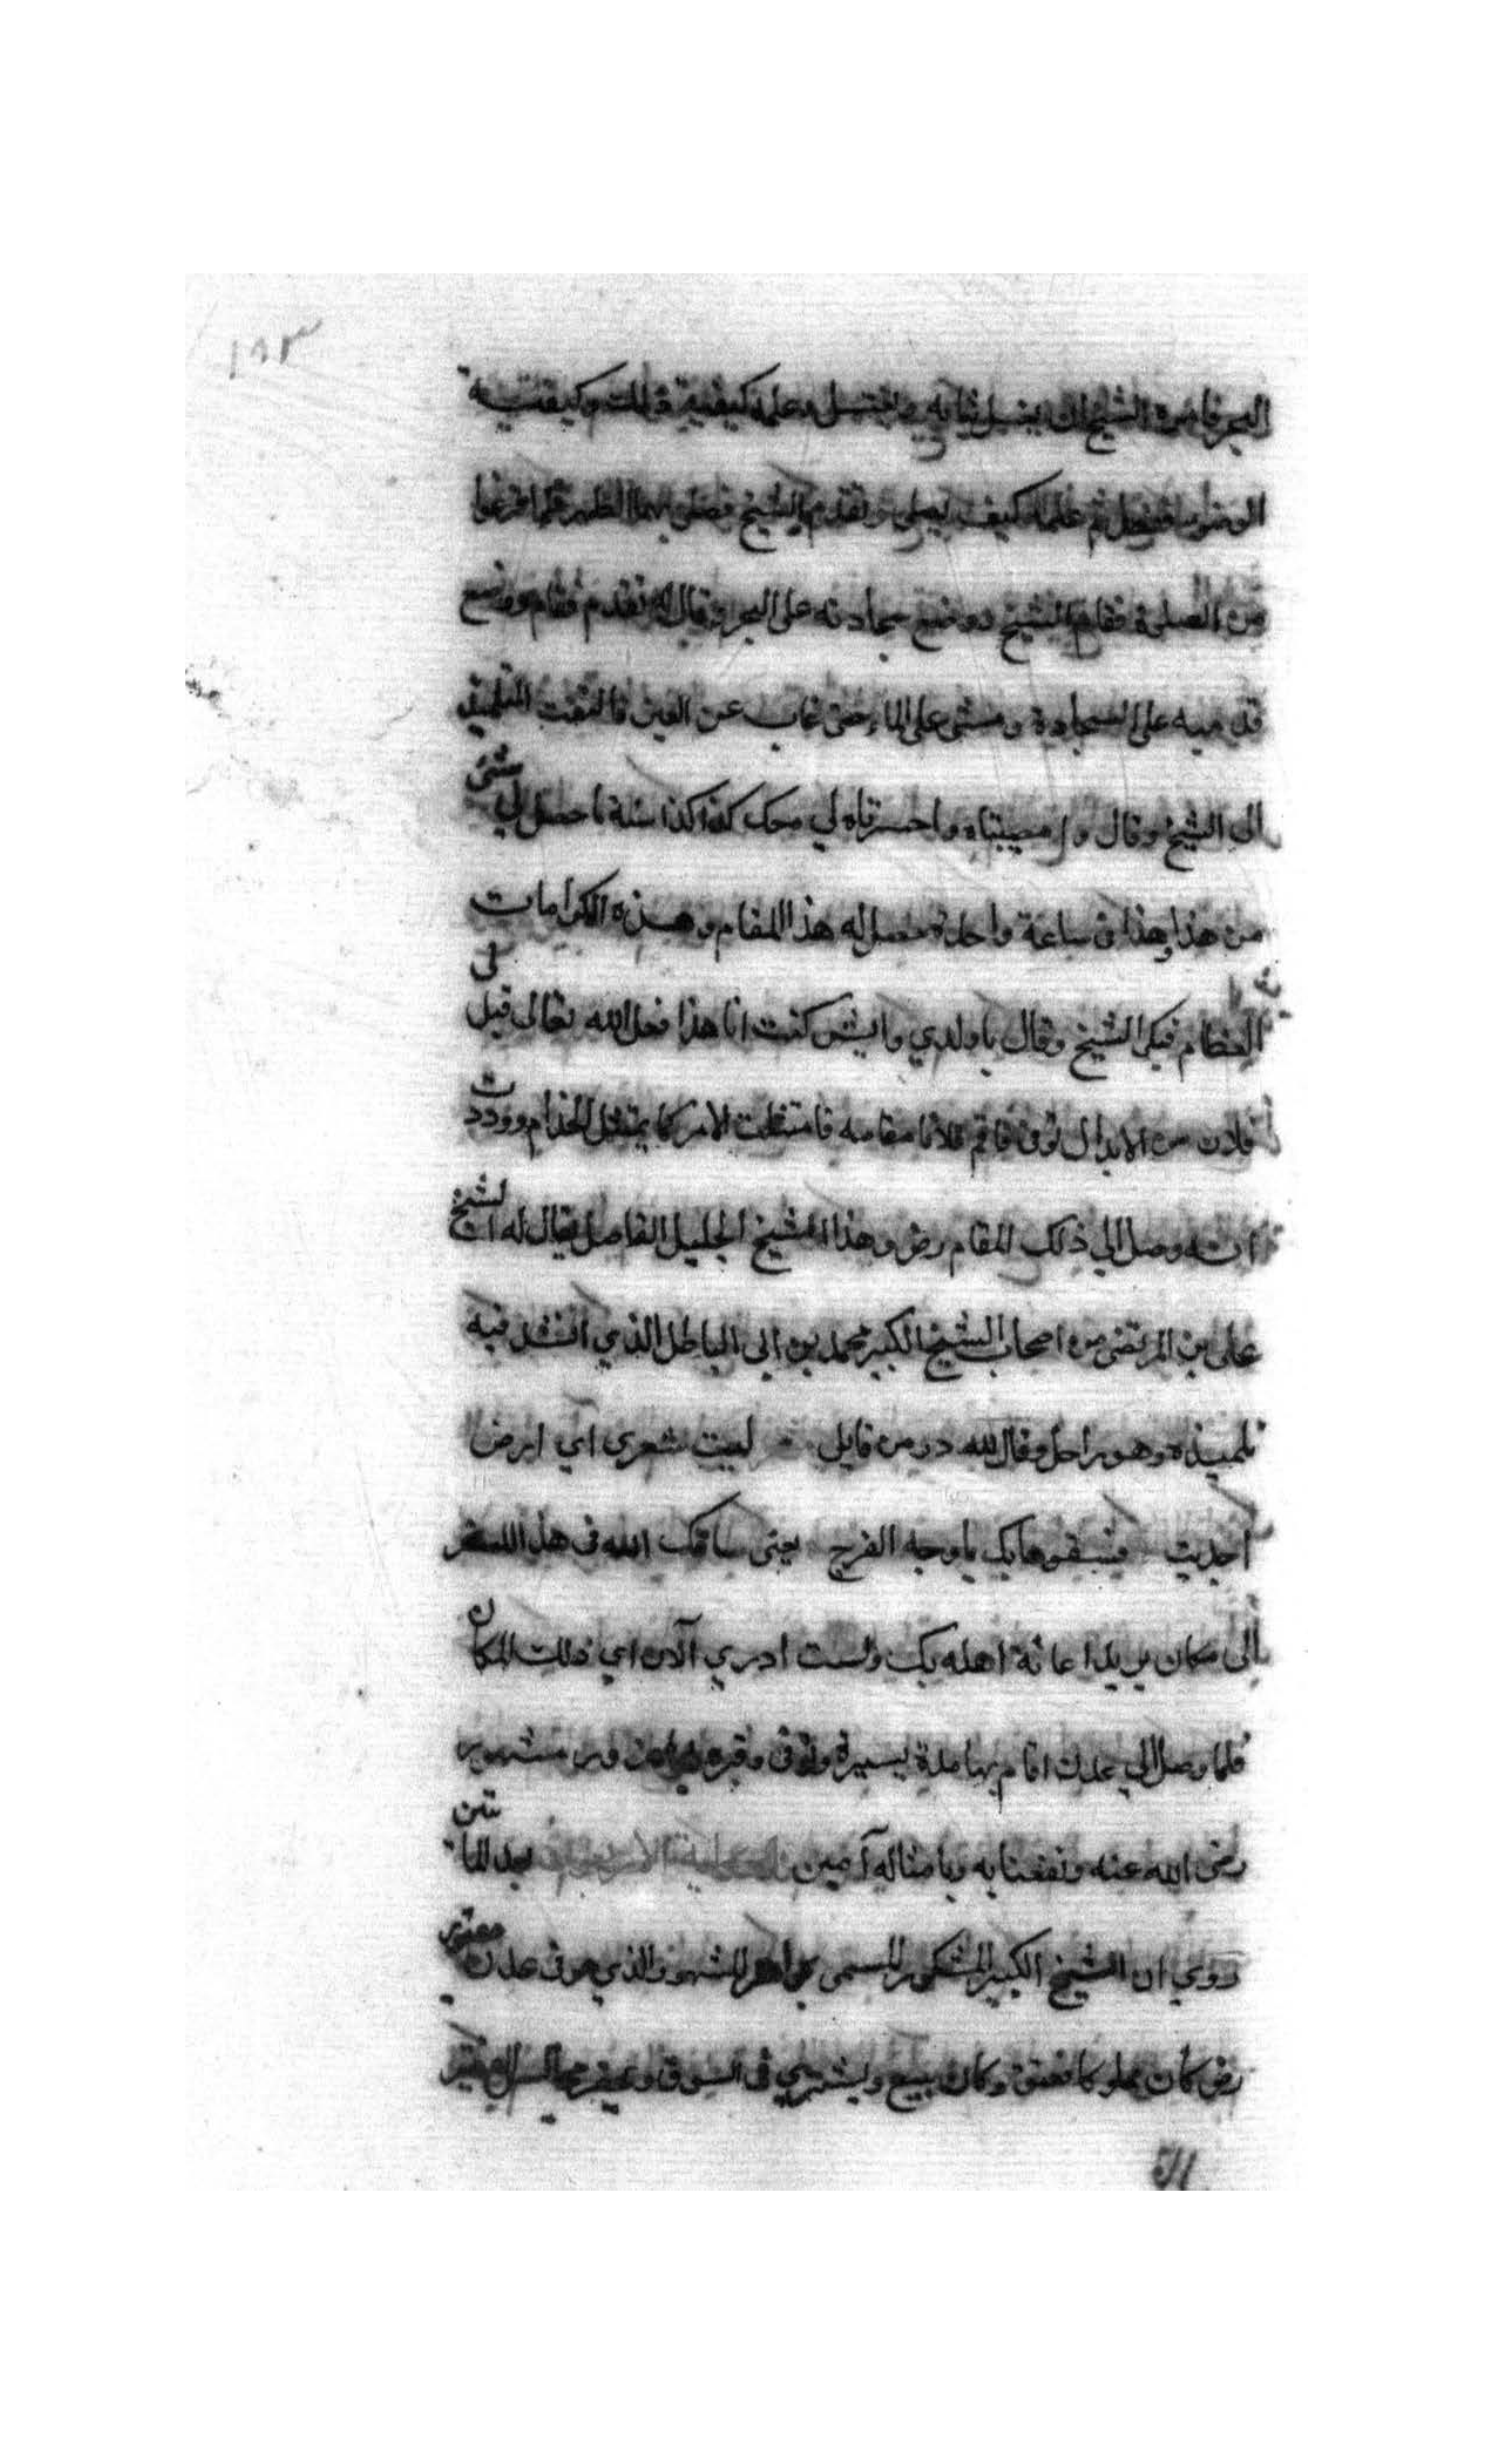 ١٩٣
البحر فامره الشيخ ان يغسل ثيابه ويغتسل وعلمه كيفية ذلك وكيفية
الوضوء ثم علمه كيف يصلي وتقدم الشيخ فصلى بهما الظهر فلما فرغوا
من الصلوة فقام الشيخ ووضع سجادته على البحر وقال له تقدم فقام ووضع
قدميه على السجادة ومشى على الماء حتى غاب عن العين فالتفت التلميذ
الى الشيخ وقال وا مصيبتاه واحسرتاه لي معك كذا كذا سنة ما حصل لي شئ
من هذا وهذا في ساعة واحدة حصل له هذا المقام وهذه الكرامات
العظام فبكى الشيخ وقال يا ولدي وايش كنت انا هذا فعل الله تعالى قيل لي
فلان من الابدال توفي فاقم فلانا مقامه فامتثلت الامر كما يمتثل الخدام ووددت
انه وصل الي ذلك المقام رض وهذا الشيخ الجليل الفاضل يقال له الشيخ
على بن المرتضى من اصحاب الشيخ الكبير محمد بن ابي الباطل الذي انشد فيه
تلميذه وهو راحل وقال لله در من قايل ليت شعري آي ارض
أجدبت فسقوها بك يا وجه الفرج يعني ساقك الله في هذا السفر
إلى مكان يريد اعانة اهله بك ولست ادري الآن اي ذلك المكان
فلما وصل الي عدن اقام بها مدة يسيرة وتوفى وقبره مشهور
رضى الله عنه ونفعنا به وبامثاله آمين الحكاية الاربعون بعد المائتين
روي ان الشيخ الكبير المسمى جوهر المشهور الذي هو في عدن
رض كان مملوكا فعتق وكان يبيع ويشتري في السوق